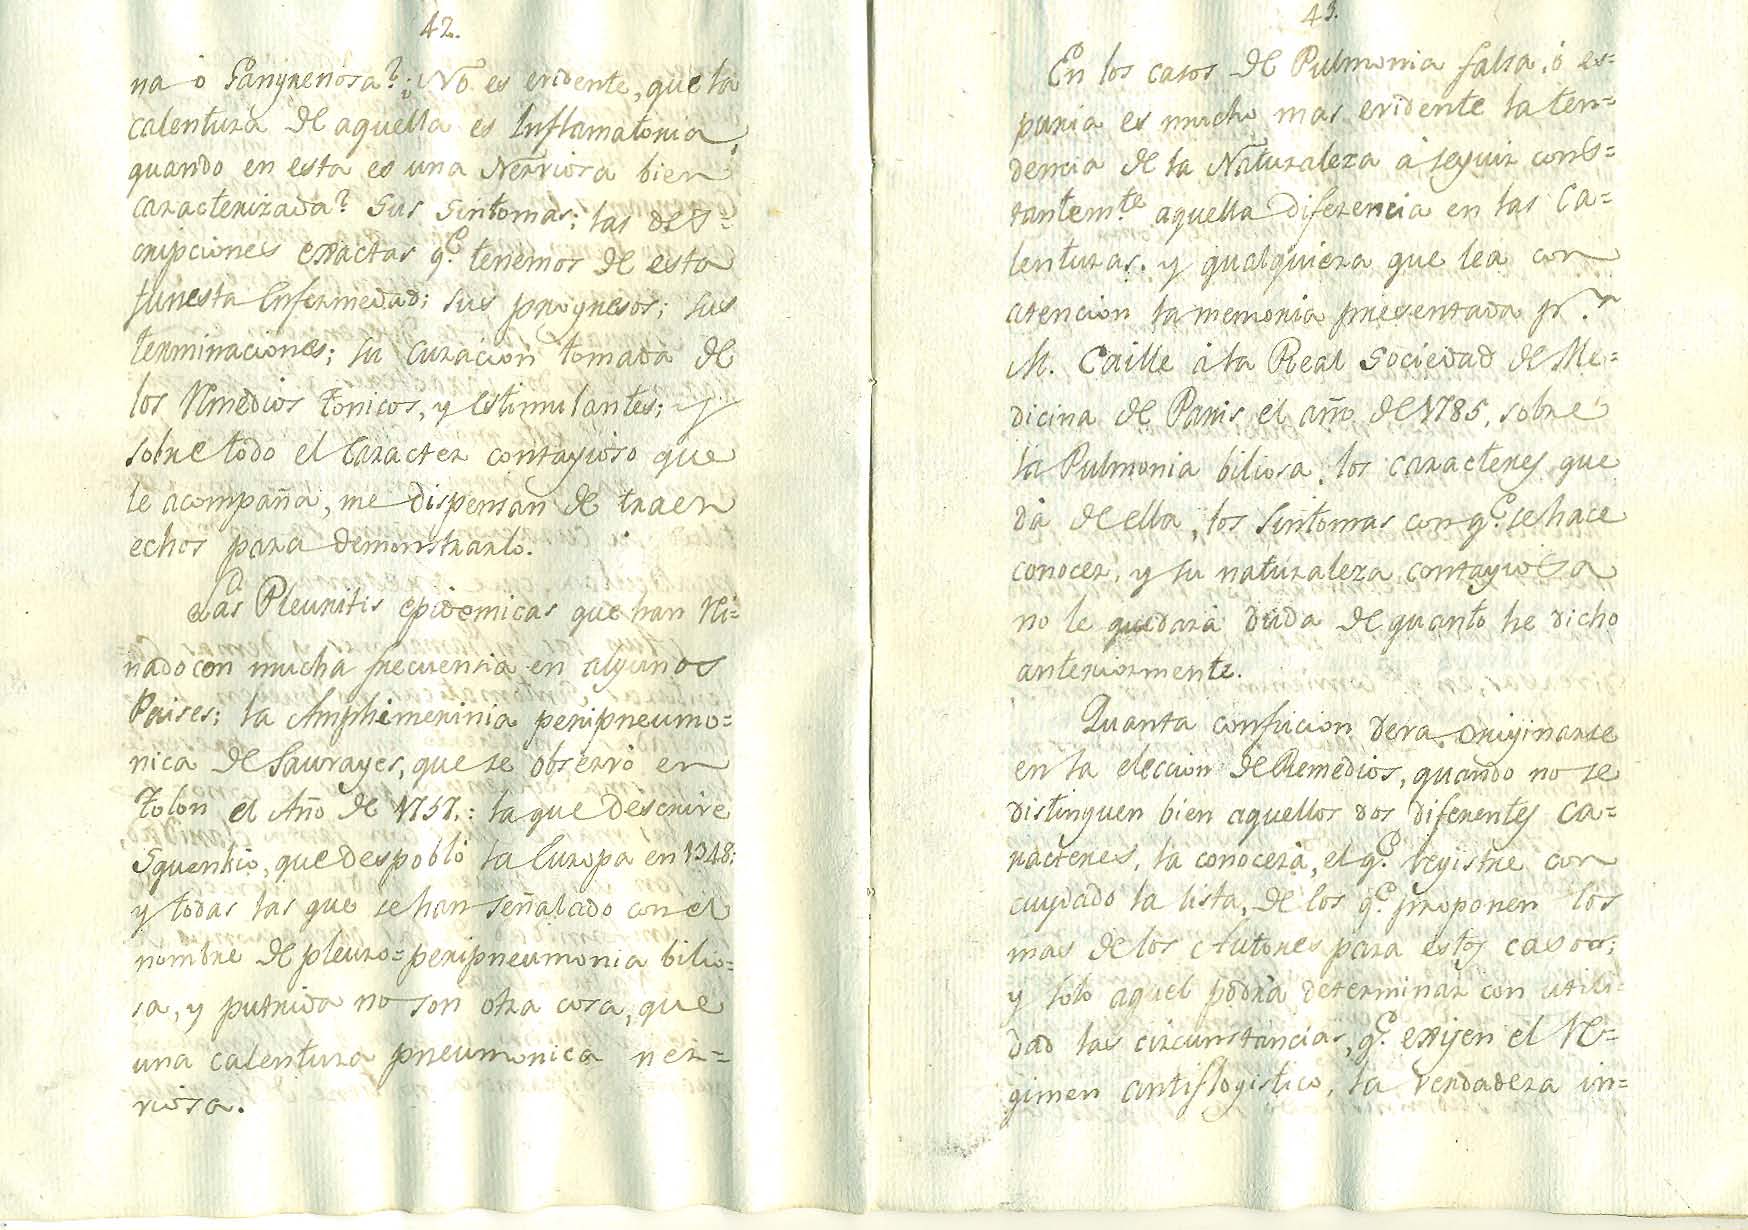 42.
na ò Gangrenosa? ¿No es evidente, que la
calentura de aquella es Inflamatoria,
quando en esta es una Nerviosa bien
caracterizada? Sus sintomas; las des=
cripciones exactas q.e tenemos de esta
funesta Enfermedad; sus progresos; sus
terminaciones; su curacion tomada de
los Rmedios tonicos, y estimulantes; y
sobre todo el caracter contagioso que
le acompaña, me dispensan de traer
echos para demonstrarlo.
Las Pleuritis epidemicas que han Rei=
nado con mucha frecuencia en algunos
Paises; la Amphimerinia peripneumo=
nica de Sauvages, que se observó en
Tolon el Año de 1757.: la que descrive
Squenkio, que despobló la Europa en 1348;
y todas las que se han señalado con el
nombre de pleuro=peripneumonia bilio=
sa, y putrida no son otra cosa, que
una calentura pneumonica ner=
viosa.
43.
En los casos de Pulmonia falsa, ó es=
puria es mucho mas evidente la ten=
dencia de la Naturaleza á seguir cons=
tantem.te aquella diferencia en las Ca=
lenturas. y qualquiera que lea con
atencion la memoria presentada pr.
M. Caille á la Real Sociedad de Me=
dicina de Paris el año de 1785, sobre
la Pulmonia biliosa, los caracteres que
dá de ella, los sintomas con q.e se hace
conocer, y su naturaleza contagiosa
no le quedará duda de quanto he dicho
anteriormente.
Quanta confucion deva originarse
en la eleccion de Remedios, quando no se
distinguen bien aquellos dos diferentes ca=
racteres, la conocerá, el q.e registre con
cuydado la lista, de los q.e proponen los
mas de los Autores para estos casos;
y solo aquel podrá determinar con utili=
dad las circunstancias, q.e exijen el Re=
gimen antiflogistico, la verdadera in=